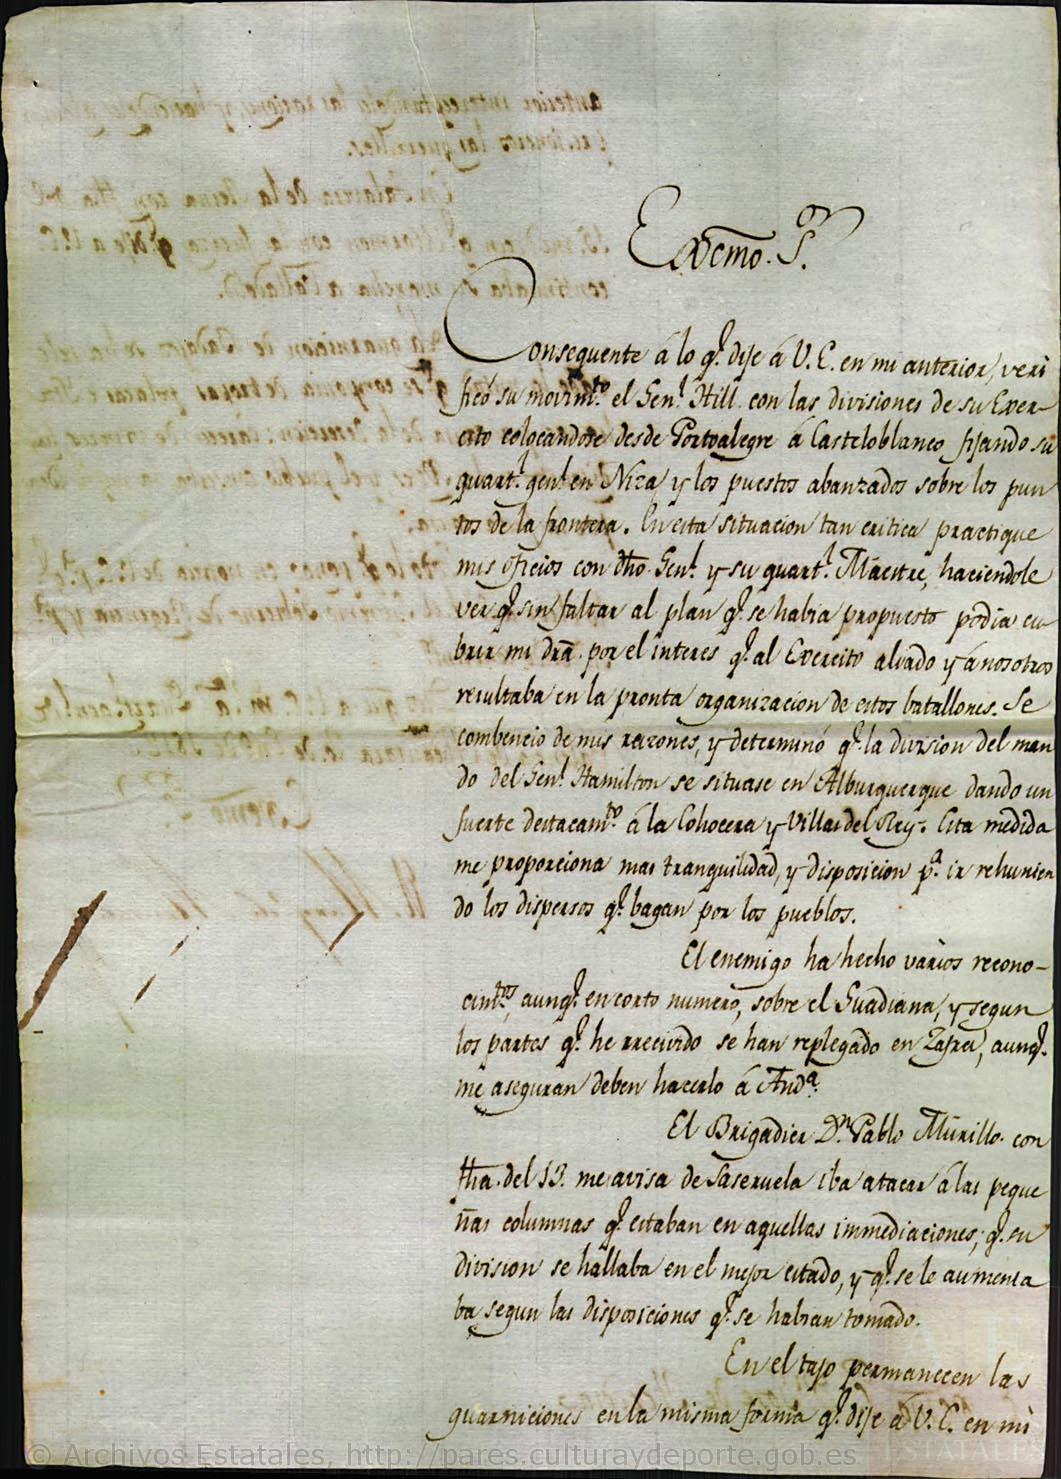 Excmo. S.or
Consequente á lo q.e dije á V. E. en mi anterior, veri
ficó su movim.to el Gen.l Hill con las divisiones de su Exer-
cito colocandose desde Portoalegre á Casteloblanco fijando su
quart.l gen.l en Niza y los puestos abanzados sobre los pun
tos de la frontera. En esta situacion tan critica practique
mis oficios con dho. Gen.l y su quart.l Maestre, haciendole
ver q.e sin faltar al plan q.e se habia propuesto podia cu-
brir mi dra. por el interes q.e al Exercito aliado y á nosotros
resultaba en la pronta organizacion de estos batallones. Se
combencio de mis razones, y determinó q.e la division del man
do del Gen.l Hamilton se situase en Alburquerque dando un
fuerte destacam.to á la Cohocera y Villar del Rey. Esta medida
me proporciona mas tranquilidad, y disposicion p.a ir rehunien
do los dispersos q.e bagan por los pueblos.
El enemigo ha hecho varios recono-
cim.tos, aunq.e en corto numero, sobre el Guadiana, y segun
los partes q.e he rrecivido se han replegado en Zafra, aunq.e
me aseguran deben hacerlo á And.a
El Brigadier D.n Pablo Murillo con
fha. del 13. me avisa de Saseruela iba atacar á las peque
ñas columnas q.e estaban en aquellas immediaciones; q.e su
division se hallaba en el mejor estado, y q.e se le aumenta
ba segun las disposiciones q.e se habian tomado.
En el tajo permanecen las
guarniciones en la misma forma q.e dije á V. E. en mi
© Archivos Estatales, http://pares.culturaydeporte.gob.es